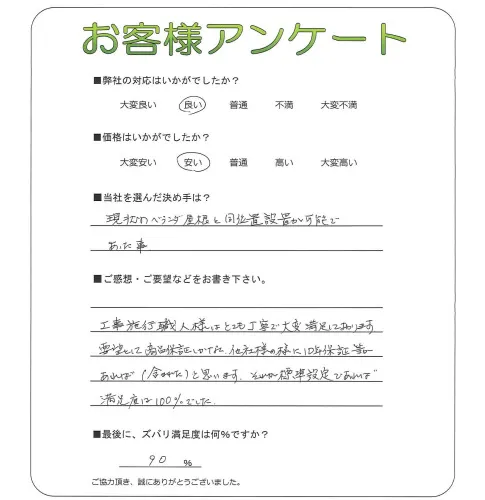 お客様アンケート
■弊社の対応はいかがでしたか？
大変良い 良い 普通 不満 大変不満
■価格はいかがでしたか？
大変安い 安い 普通 高い 大変高い
■当社を選んだ決め手は？
現状のベランダ屋根と同位置設置が可能で
あった事
■ご感想・ご要望などをお書き下さい。
工事施行職人様はとても丁寧で大変満足しております
要望として商品保証しかなく、他社様の様に10年保証等が
あれば（含めた）と思います、それが標準設定であれば
満足度は100%でした
■最後に、ズバリ満足度は何％ですか？
90 %
ご協力頂き、誠にありがとうございました。